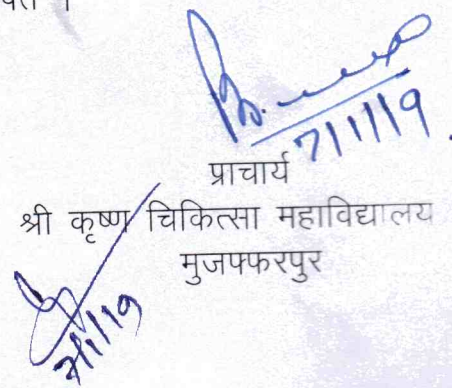 7/1/19
प्राचार्य
श्री कृष्ण चिकित्सा महाविद्यालय
मुजफ्फरपुर
7/1/19